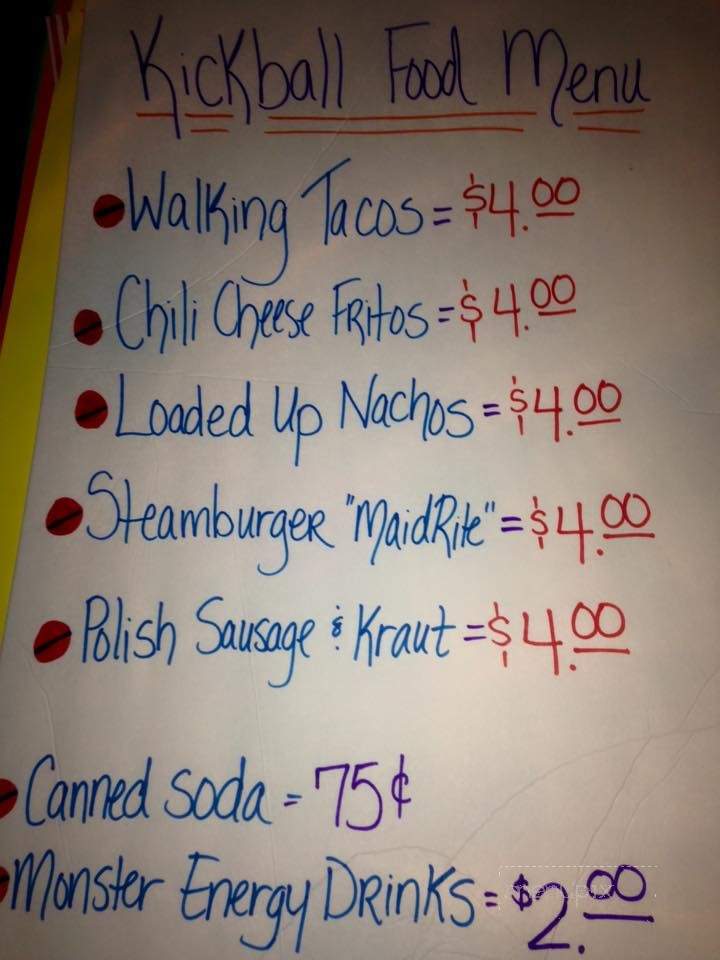 Kickball Food Menu
Walking Tacos = $4.00
Chili Cheese Fritos = $4.00
Loaded Up Nachos = $4.00
Steamburger "MaidRite" = $4.00
Polish Sausage & Kraut = $4.00
Canned Soda = 75¢
Monster Energy Drinks = $2.00